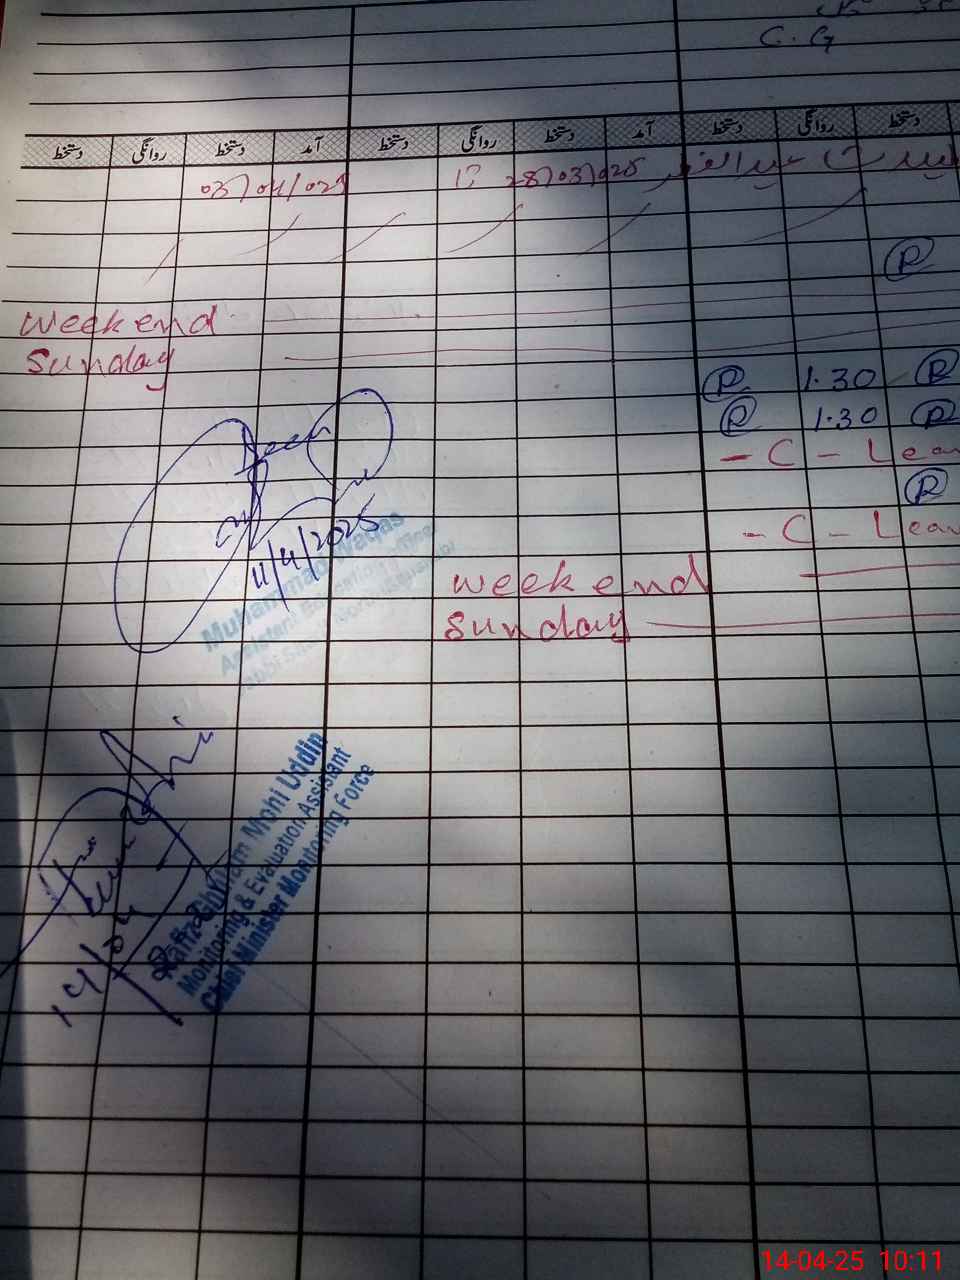 C.G
دستخط روانگی دستخط آمد دستخط روانگی دستخط آمد دستخط روانگی دستخط
03/04/025 28/03/025
R
Weekend
Sunday
R 1.30 R
R 1.30 R
- C - Lea
R
- C - Lea
Seen
11/4/2025
Muhammad Waqas
Assistant Education Officer
Weekend
Sunday
14/04
Hafiz Ghulam Mohi Uddin
Monitoring & Evaluation Assistant
Chief Minister Monitoring Force
14-04-25 10:11